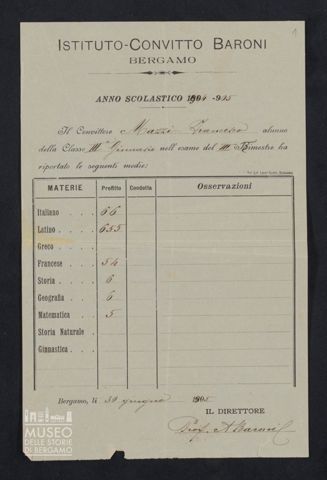 1
ISTITUTO-CONVITTO BARONI
BERGAMO
ANNO SCOLASTICO 1904-905
Il Convittore Mazzi Francesco alunno
della Classe IIIa Ginnasio nell'esame del III Bimestre ha
riportato le seguenti medie:
MATERIE Profitto Condotta Osservazioni
Italiano 6 6
Latino 6 5 5
Greco
Francese 5 4
Storia 6
Geografia 6
Matematica 5
Storia Naturale
Ginnastica
Bergamo, li 30 giugno 1905
IL DIRETTORE
Prof. A Baroni
MUSEO
DELLE STORIE
DI BERGAMO